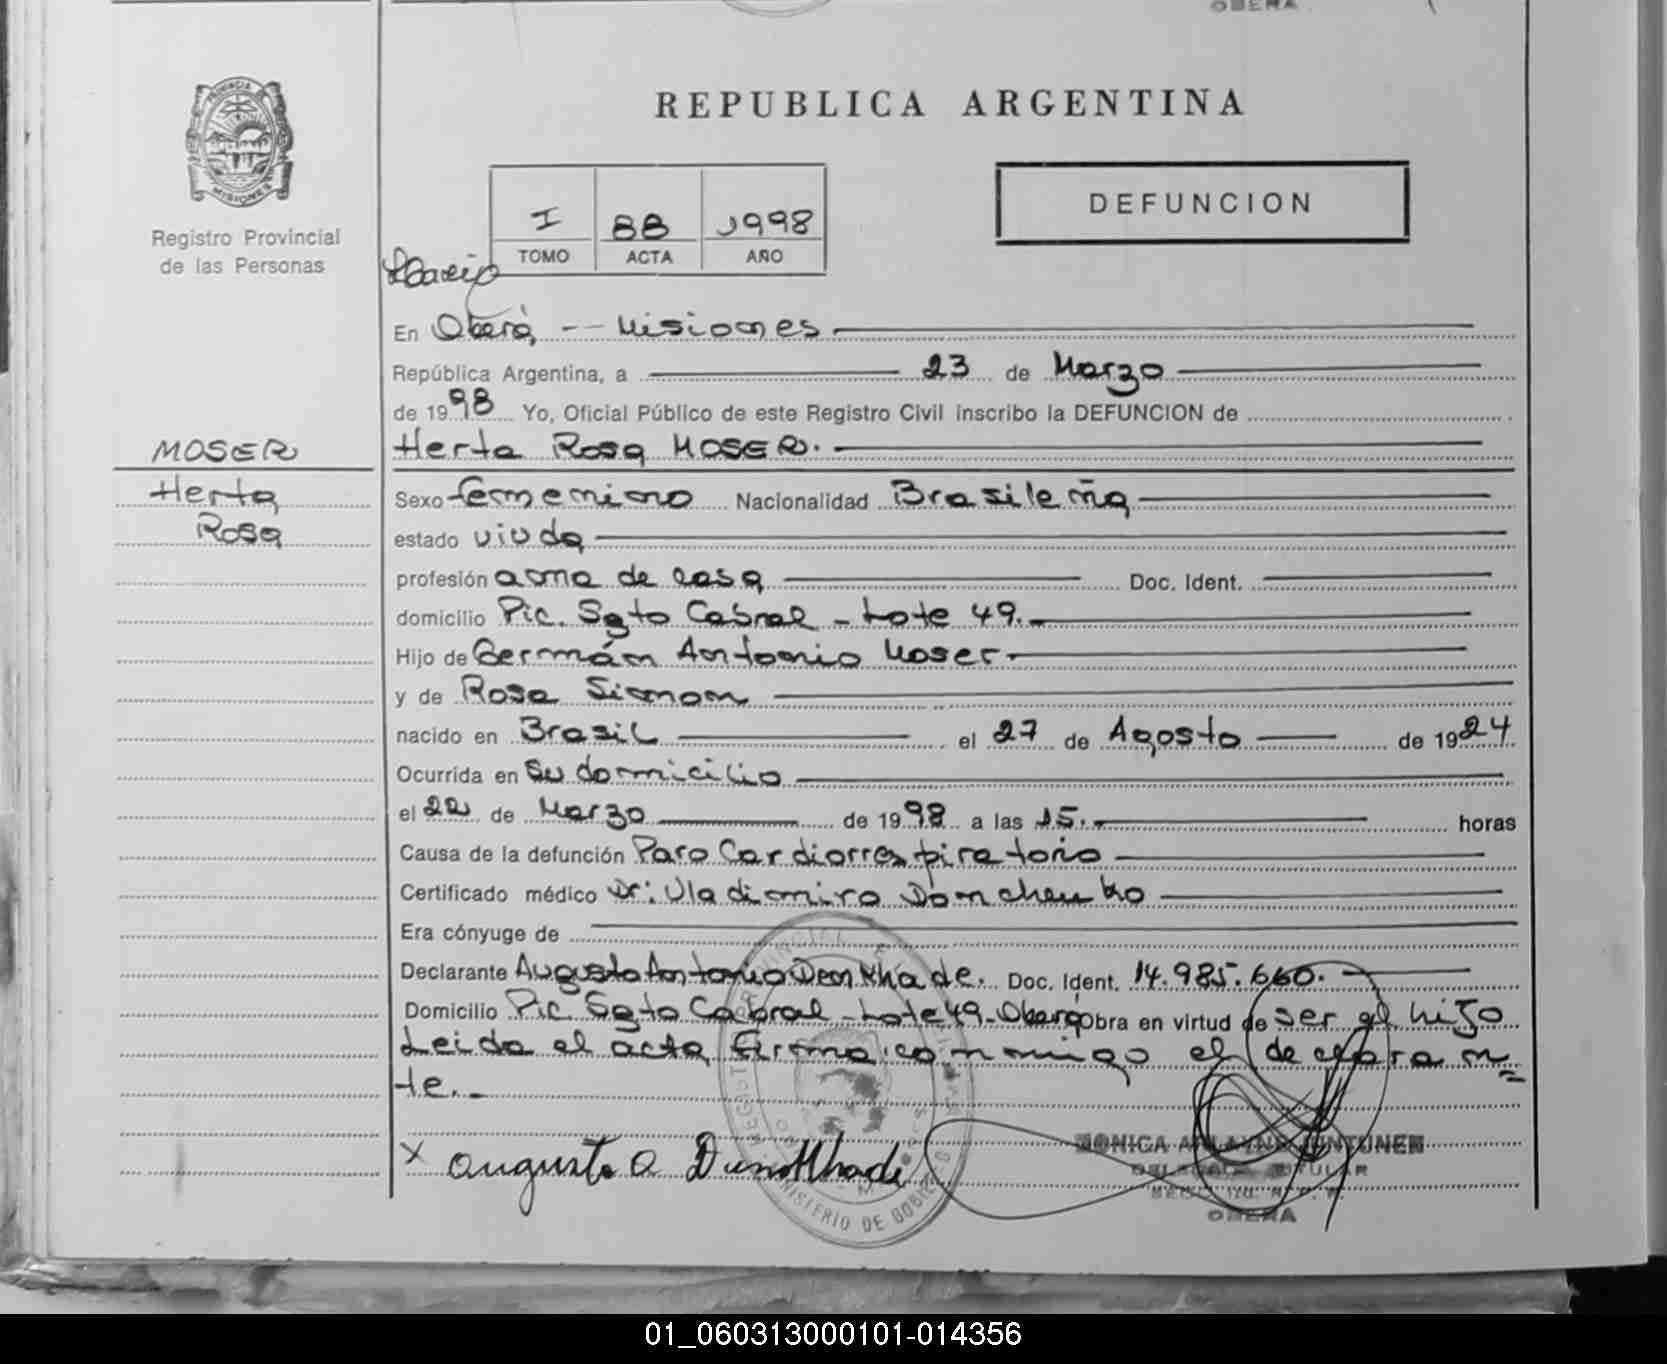 OBERA
REPUBLICA ARGENTINA
PROVINCIA
MISIONES
Registro Provincial
de las Personas
I 88 1998
TOMO ACTA AÑO
DEFUNCION
En Oberá, -- Misiones
República Argentina, a 23 de Marzo
de 1998 Yo, Oficial Público de este Registro Civil inscribo la DEFUNCION de
MOSER
Herta
Rosa
Herta Rosa MOSER.
Sexo femenino Nacionalidad Brasileña
estado viuda
profesión ama de casa Doc. Ident.
domicilio Pic. Sgto Cabral - Lote 49.-
Hijo de Germán Antonio Moser.
y de Rosa Simon
nacido en Brasil el 27 de Agosto de 1924
Ocurrida en su domicilio
el 22 de Marzo de 1998 a las 15.- horas
Causa de la defunción Paro Cardiorrespiratorio
Certificado médico Dr: Vladimiro Domchenko
Era cónyuge de
Declarante Augusto Antonio Denkhade. Doc. Ident. 14.985.660.
Domicilio Pic. Sgto Cabral - Lote 49 - Oberá Obra en virtud de ser el hijo
Leida el acta firma conmigo el declaran=
te.-
x Augusto A
MINISTERIO DE GOBIERNO
MONICA
TITULAR
OBERA
01_060313000101-014356